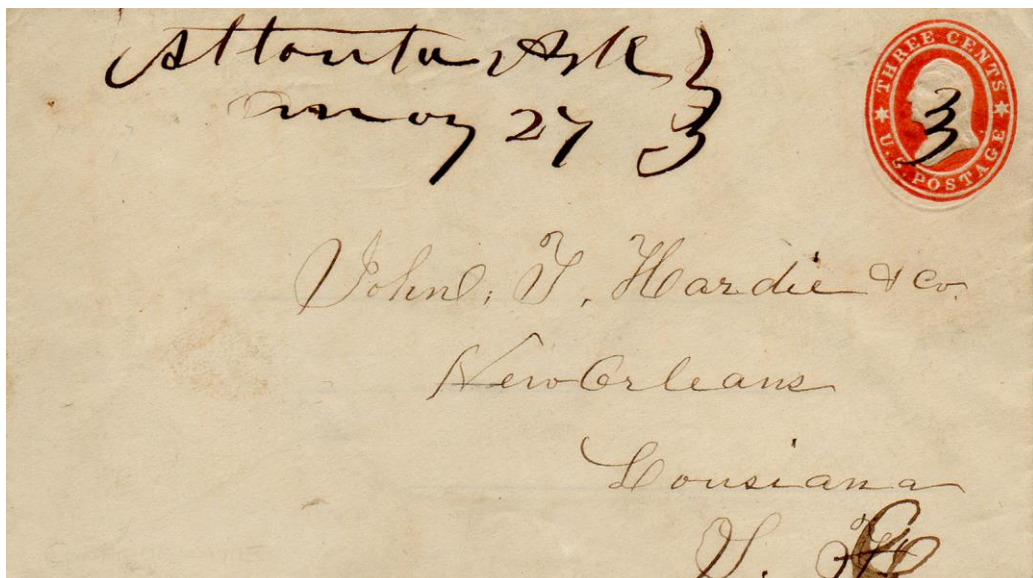 Atlanta Ark
May 27
3
THREE CENTS
U.S. POSTAGE
John, T. Hardie & Co.
New Orleans
Lousiana